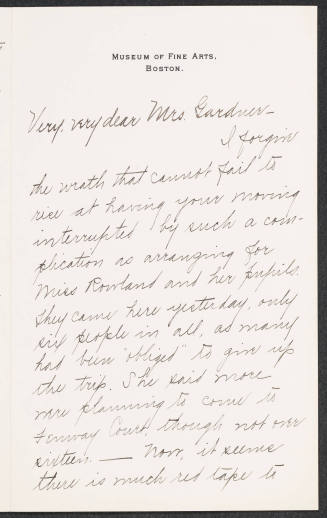 MUSEUM OF FINE ARTS,
BOSTON.
Very, very dear Mrs. Gardner—
I forgive
the wrath that cannot fail to
rise at having your moving
interrupted by such a com-
plication as arranging for
Miss Rowland and her pupils.
They came here yesterday, only
six people in all, as many
had been "obliged" to give up
the trip. She said more
were planning to come to
Fenway Court, though not over
sixteen. — Now, it seems
there is much red tape to